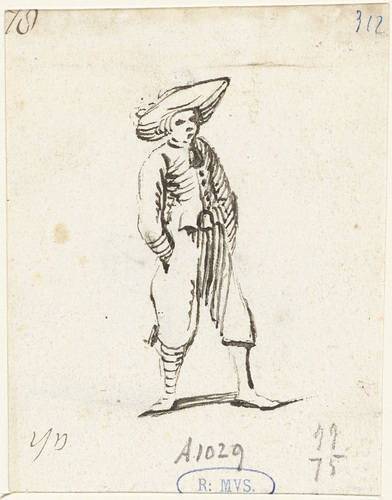 78
312
A1029
77
75
R: MVS.